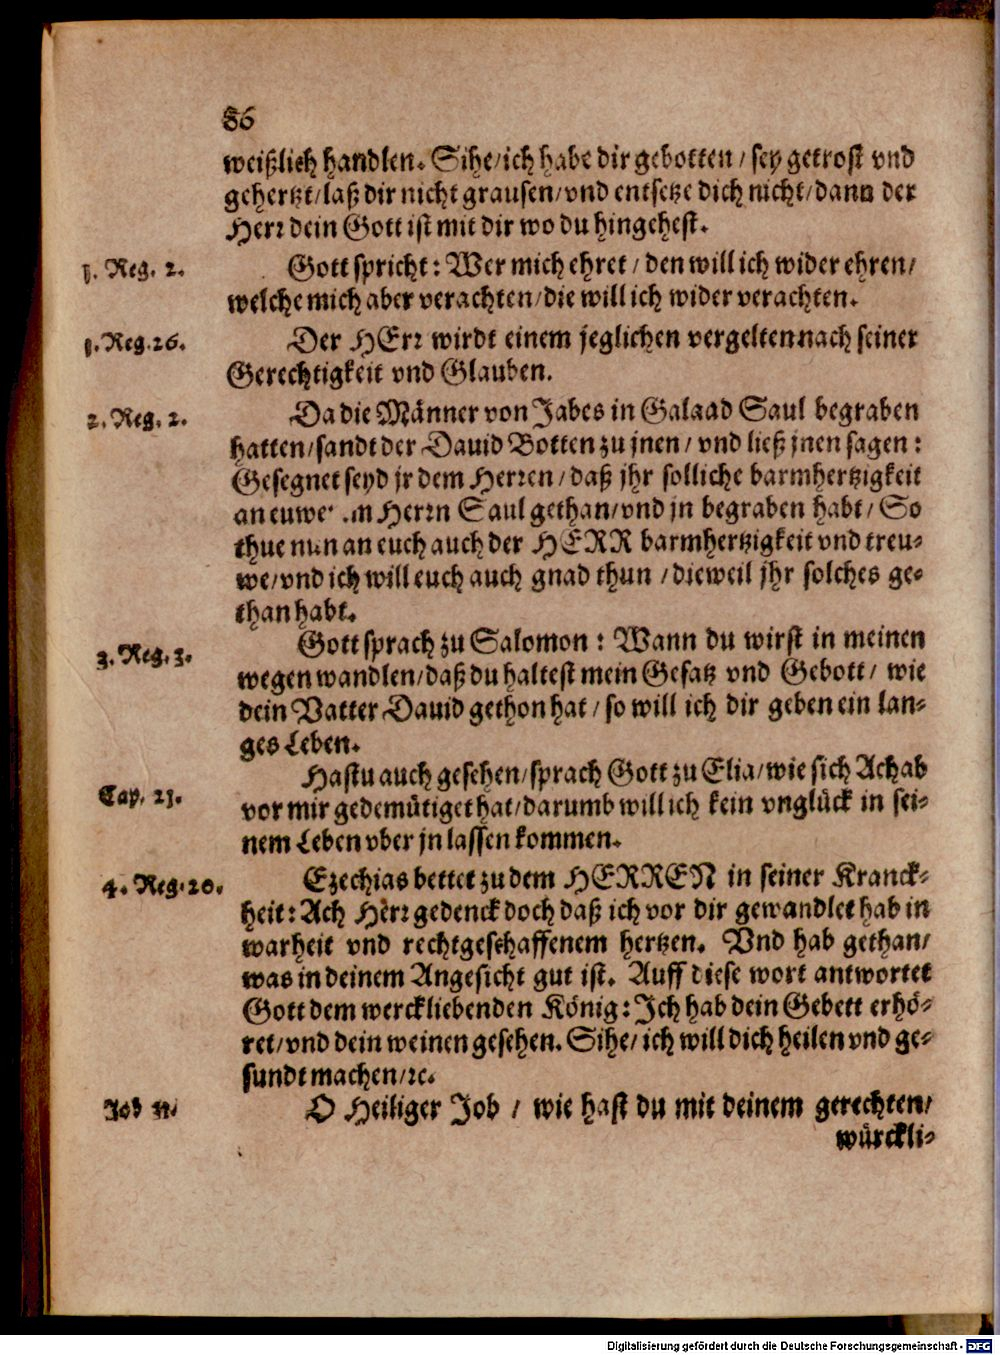 86
weißlich handlen. Sihe/ich habe dir gebotten / sey getrost vnd
gehertzt/laß dir nicht grausen/vnd entsetze dich nicht/dann der
Herr dein Gott ist mit dir wo du hingehest.
1. Reg. 2.
Gott spricht: Wer mich ehret / den will ich wider ehren/
welche mich aber verachten/die will ich wider verachten.
1. Reg. 26.
Der HErr wirdt einem jeglichen vergelten nach seiner
Gerechtigkeit vnd Glauben.
2. Reg. 2.
Da die Männer von Jabes in Galaad Saul begraben
hatten/sandt der Dauid Botten zu jnen / vnd ließ jnen sagen:
Gesegnet seyd jr dem Herren / daß jhr solliche barmhertzigkeit
an Herrn Saul gethan/vnd jn begraben habt / So
thue nun an euch auch der HERR barmhertzigkeit vnd treu-
we/vnd ich will euch auch gnad thun / dieweil jhr solches ge-
than habt.
3. Reg. 3.
Gott sprach zu Salomon: Wann du wirst in meinen
wegen wandlen/daß du haltest mein Gesatz vnd Gebott/ wie
dein Vatter Dauid gethon hat / so will ich dir geben ein lan-
ges Leben.
Cap. 21.
Hastu auch gesehen/sprach Gott zu Elia/wie sich Achab
vor mir gedemütiget hat/darumb will ich kein vnglück in sei-
nem Leben vber jn lassen kommen.
4. Reg. 20.
Ezechias bettet zu dem HERREN in seiner Kranck-
heit: Ach Herr gedenck doch daß ich vor dir gewandlet hab in
warheit vnd rechtgeschaffenem hertzen. Vnd hab gethan/
was in deinem Angesicht gut ist. Auff diese wort antwortet
Gott dem werckliebenden König: Ich hab dein Gebett erhö-
ret/vnd dein weinen gesehen. Sihe/ ich will dich heilen vnd ge-
sundt machen/ꝛc.
Job
O Heiliger Job / wie hast du mit deinem gerechten/
würckli-
Digitalisierung gefördert durch die Deutsche Forschungsgemeinschaft - DFG